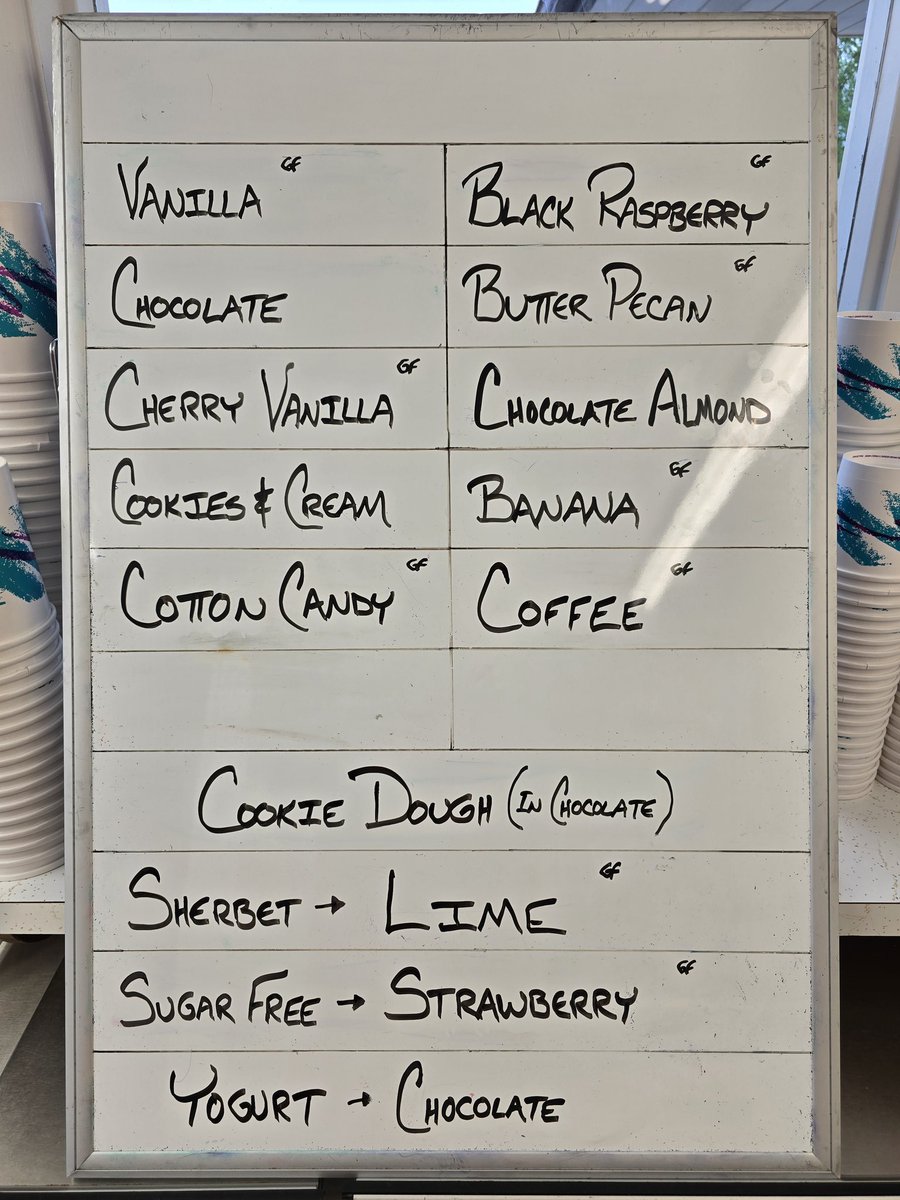 Vanilla GF
Black Raspberry GF
Chocolate
Butter Pecan GF
Cherry Vanilla GF
Chocolate Almond
Cookies & Cream
Banana GF
Cotton Candy GF
Coffee GF
Cookie Dough (In Chocolate)
Sherbet → Lime GF
Sugar Free → Strawberry GF
Yogurt → Chocolate